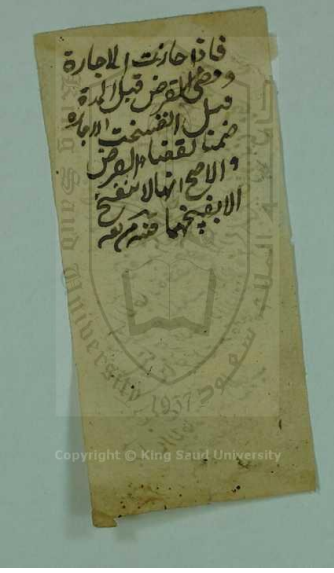 فاذا جازت الاجارة
ومضى القرض قبل المدة
قيل انفسخت الاجارة
ضمنا لقضاء القرض
والاصح انها لا تنفسخ
الا بفسخهما
King Saud University
1957
Copyright © King Saud University